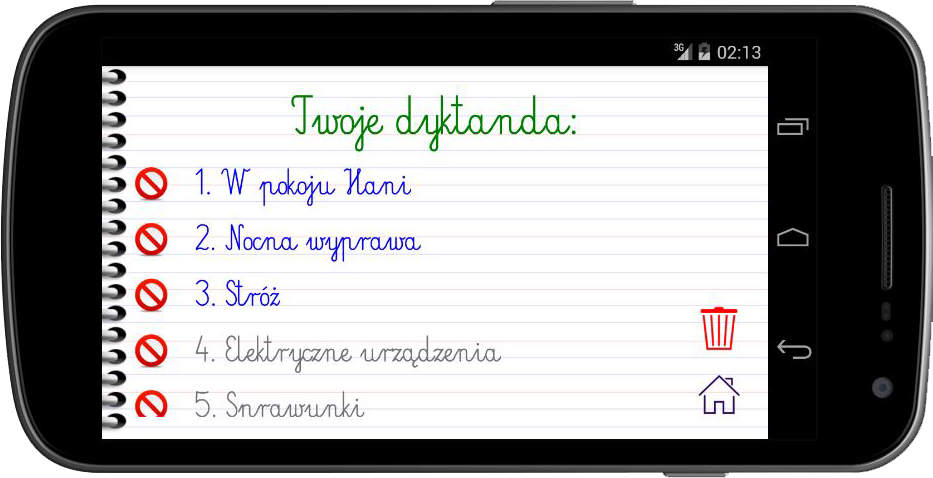 3G 02:13
Twoje dyktanda:
1. W pokoju Hani
2. Nocna wyprawa
3. Stróż
4. Elektryczne urządzenia
5. Sprawunki